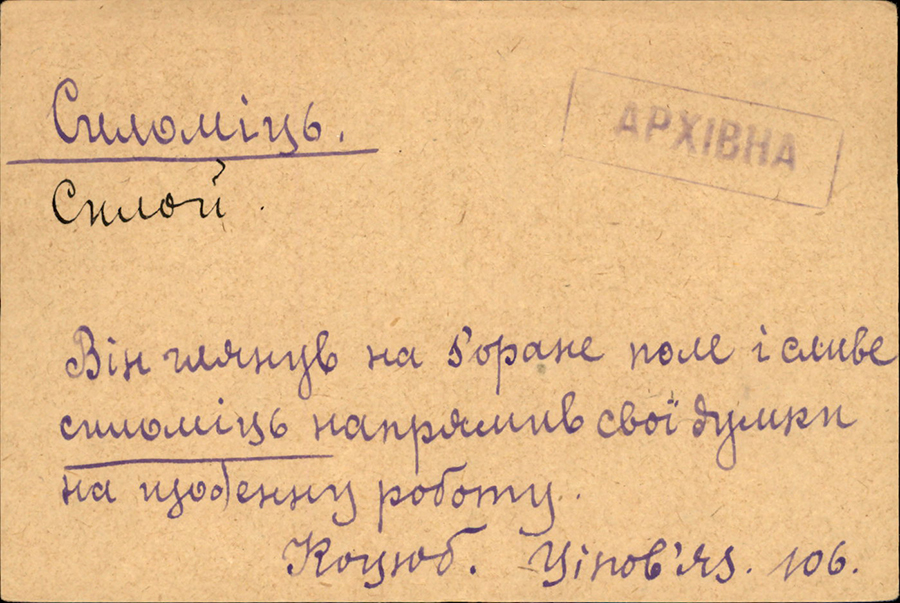 Силоміць.
АРХІВНА
Силой.
Він глянув на зоране поле і сливе
силоміць напрямив свої думки
на щоденну роботу.
Коцюб. Ціпов'яз. 106.